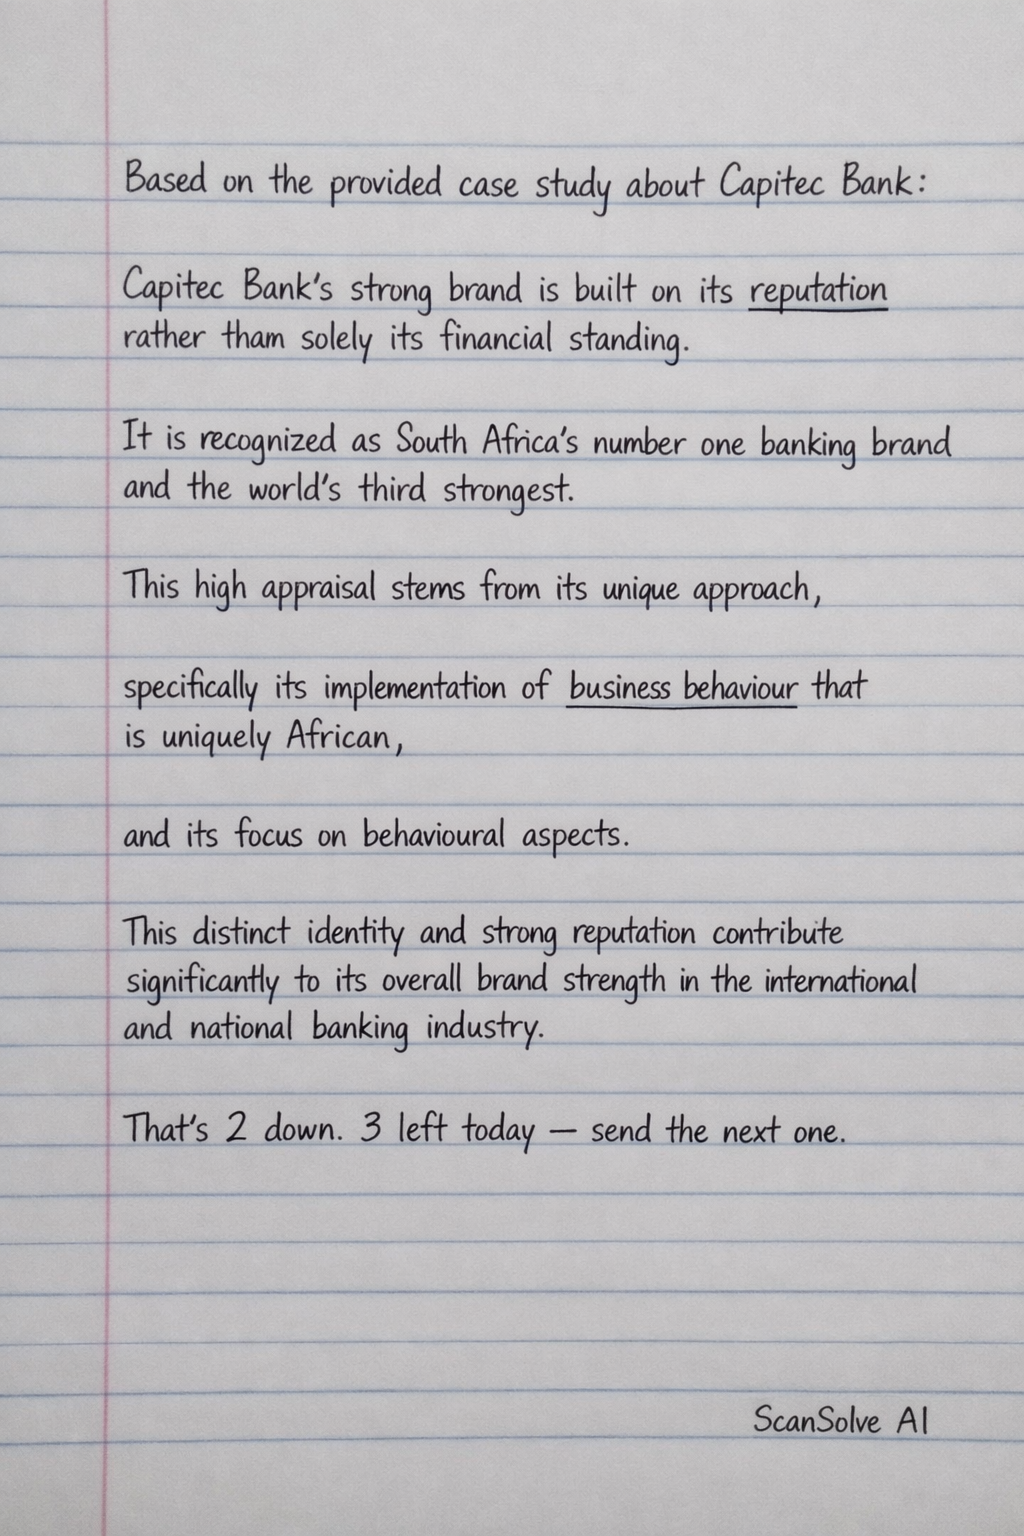 Based on the provided case study about Capitec Bank:
Capitec Bank's strong brand is built on its reputation
rather tham solely its financial standing.
It is recognized as South Africa's number one banking brand
and the world's third strongest.
This high appraisal stems from its unique approach,
specifically its implementation of business behaviour that
is uniquely African,
and its focus on behavioural aspects.
This distinct identity and strong reputation contribute
significantly to its overall brand strength in the international
and national banking industry.
That's 2 down. 3 left today — send the next one.
ScanSolve AI